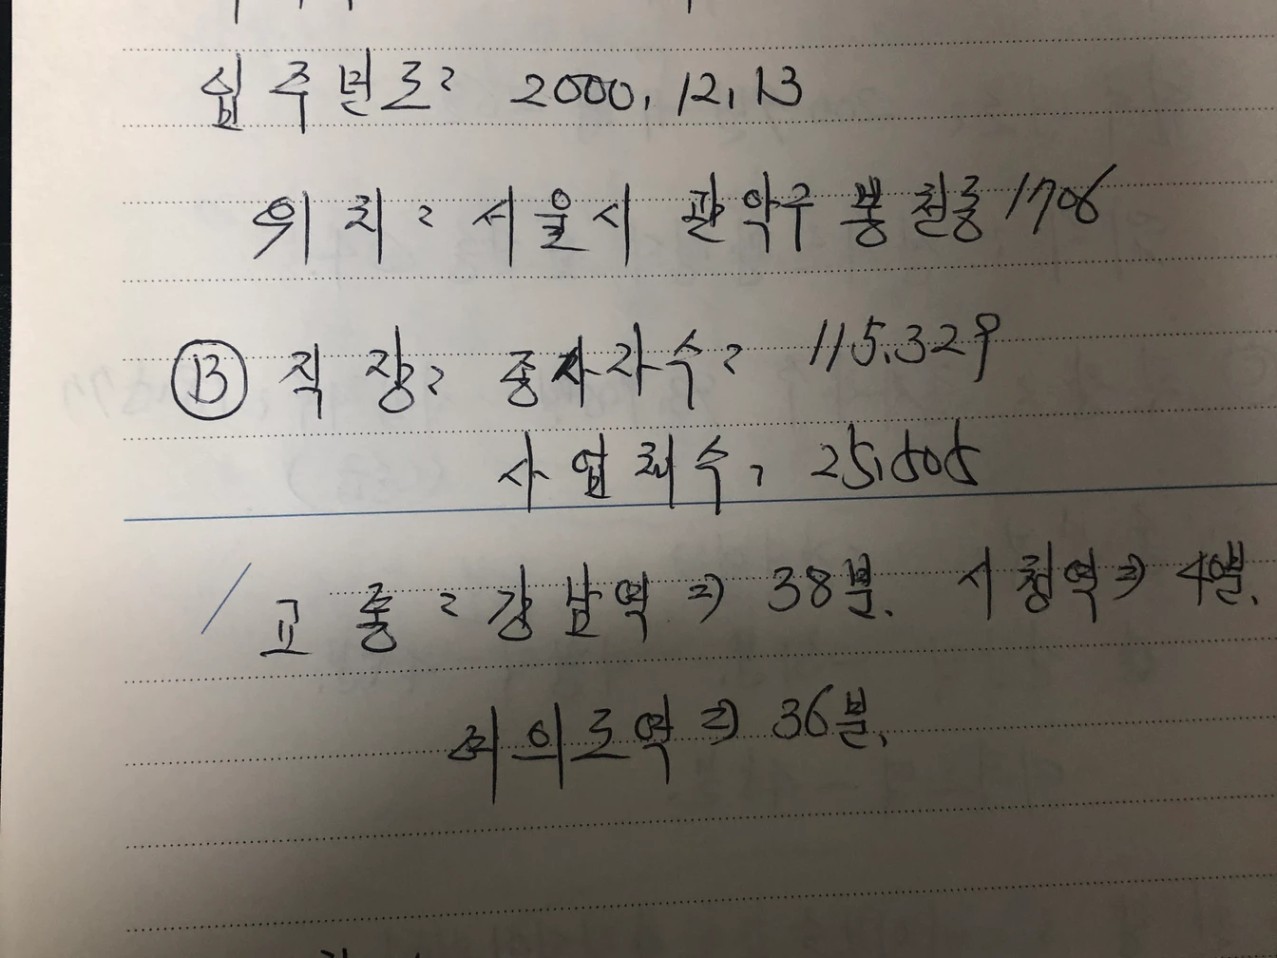 입주년도: 2000. 12. 13
위치: 서울시 관악구 봉천동 1706
Ⓑ 직장: 종사자수: 115.329
사업체수: 25,505
교통: 강남역 ⇒ 38분. 시청역 ⇒ 4분.
여의도역 ⇒ 36분.